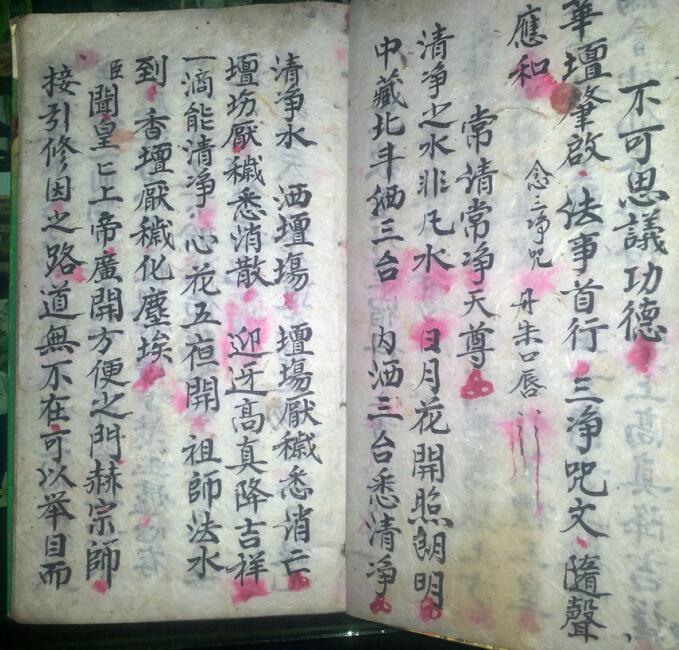 不可思議功德
華壇肇啟法事首行三净咒文隨聲
應和
念三净咒 丹朱口唇
常请常净天尊
清净之水非凢水 日月花開照朗明
中藏北斗 三台 内洒三台悉清净
清净水 洒壇場 壇場厭穢悉消亡
壇場厭穢悉消散 迎迓高真降吉祥
一滴能清净 心花五夜開 祖師法水
到 香壇厭穢化塵埃
臣聞皇上帝廣開方便之門赫宗師
接引修因之路道無不在可以举目而